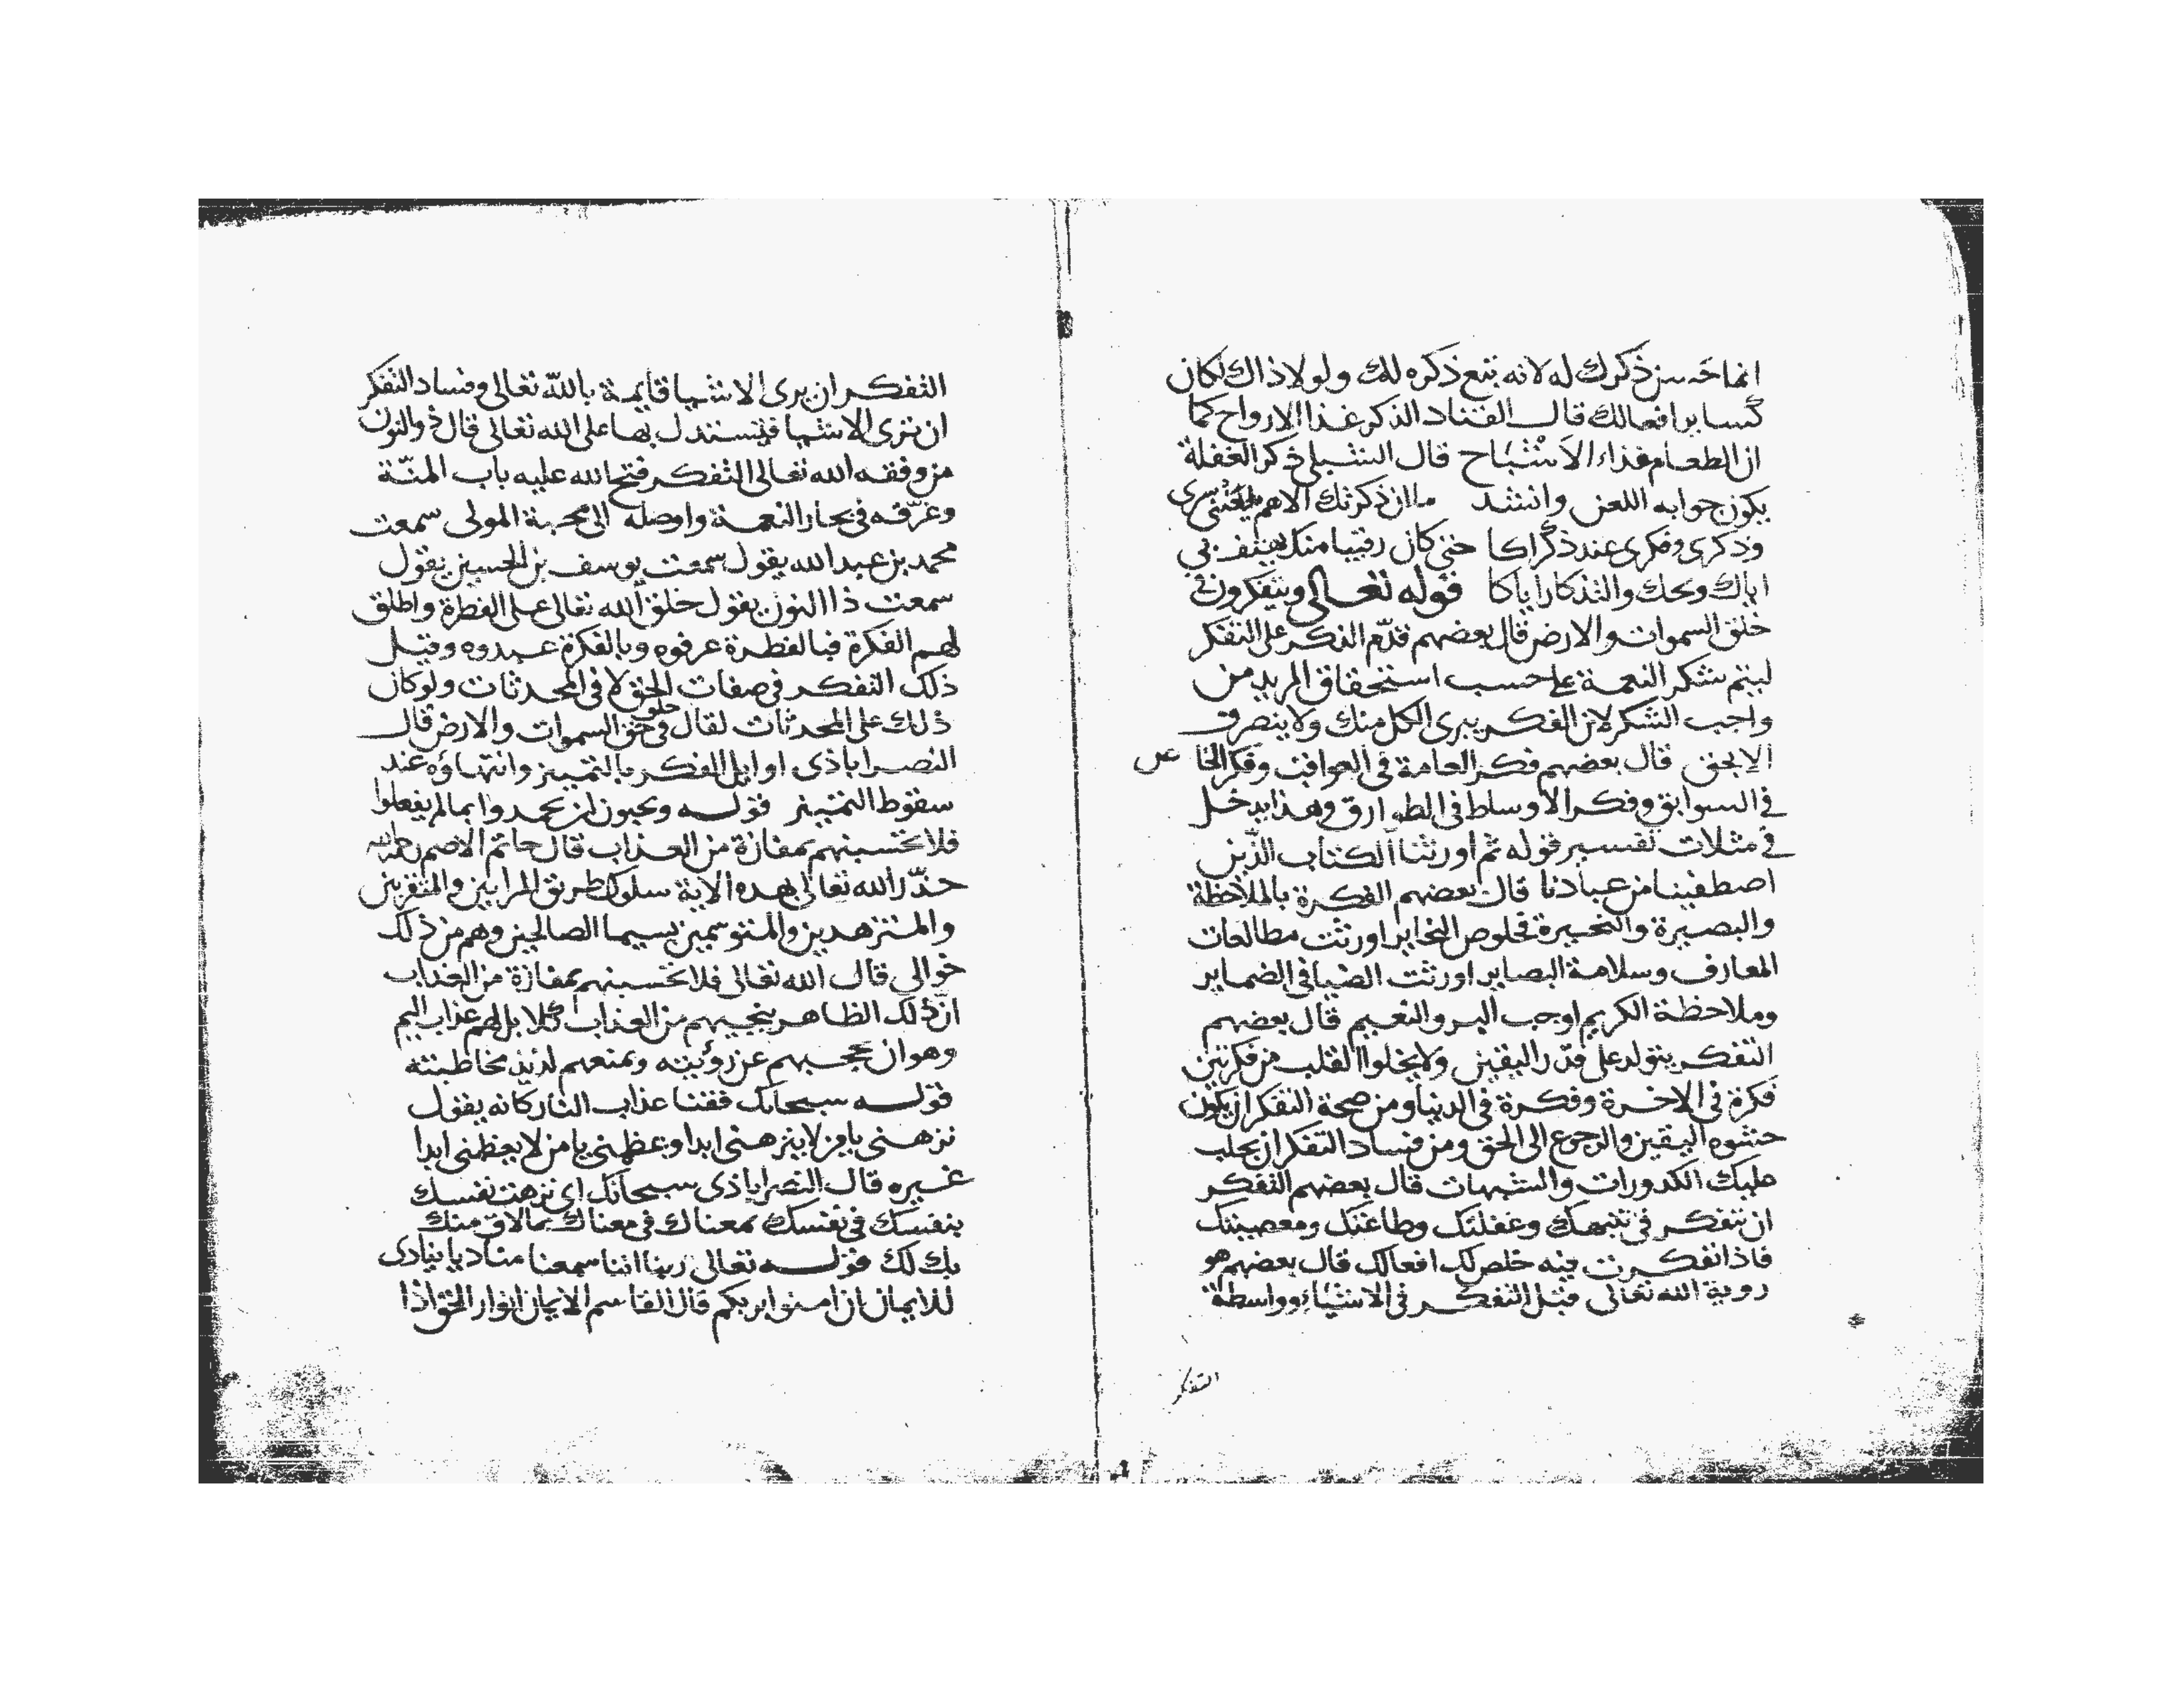 انما حسن ذكرك له لانه تبع ذكره لك ولولا ذاك لكان
كساير افعالك قال القناد الذكر غذا الارواح كما
ان الطعام غذاء الاشباح قال الشبلي ذكر الغفلة
يكون جوابه اللعن وانشد ما ان ذكرتك الا هم سرى
وذكرى وفكرى عند ذكراكا حتى كان رقيبا منك يهتف بي
اياك ويحك والتذكار اياكا قوله تعالى ويتفكرون في
خلق السموات والارض قال بعضهم قدم الذكر على التفكر
ليتم شكر النعمة على حسب استحقاق المريد من
واجب الشكر لان الفكر يرى الكل منك ولا ينصرف
الا بحق قال بعضهم فكر العامة في العواقب وفكر الخاص
في السوابق وفكر الاوساط في الطوارق وهذا يدخل
في مثلات تفسير قوله ثم اورثنا الكتاب الذين
اصطفينا من عبادنا قال بعضهم الفكرة بالملاحظة
والبصيرة والنحيرة فخلوص النحاير اورثت مطالعات
المعارف وسلامة البصاير اورثت الضيا في الضماير
وملاحظة الكريم اوجب البر والنعيم قال بعضهم
التفكر يتولد على قدر اليقين ولا يخلوا القلب من فكرتين
فكرة في الاخرة وفكرة في الدنيا ومن صحة التفكر ان يكون
حشوه اليقين والرجوع الى الحق ومن فساد التفكر ان يجلب
عليك الكدورات والشبهات قال بعضهم التفكر
ان تتفكر في تنبهك وغفلتك وطاعتك ومعصيتك
فاذا تفكرت فيه خلص لك افعالك قال بعضهم هو
روية الله تعالى قبل التفكر في الاشياء وواسطة
التفكر
التفكر ان يرى الاشيا قايمة بالله تعالى وفساد التفكر
ان ترى الاشيا فيستدل بها على الله تعالى قال ذو النون
من وفقه الله تعالى التفكر فتح الله عليه باب المنّة
وغرّقه في بحار النعمة واوصله الى محبة المولى سمعت
محمد بن عبد الله يقول سمعت يوسف بن الحسين يقول
سمعت ذا النون يقول خلق الله تعالى على الفطرة واطلق
لهم الفكرة فبالفطرة عرفوه وبالفكرة عبدوه وقيل
ذلك التفكر في صفات الحق لا في المحدثات ولو كان
ذلك على المحدثات لقال في خلق السموات والارض قال
النصراباذى اوايل الفكر بالتمييز وانتهاؤه عند
سقوط التمييز قوله ويحبون ان يحمدوا بما لم يفعلوا
فلا تحسبنهم بمفازة من العذاب قال حاتم الاصم رحمه الله
حذّر الله تعالى بهذه الاية سلوك طريق المرايين والمتقربين
والمتزهدين والمتوسمين بسيما الصالحين وهم من ذلك
خوالي قال الله تعالى فلا تحسبنهم بمفازة من العذاب
انّ ذلك الظاهر ينجيهم من العذاب كلا بل لهم عذاب اليم
وهو ان يحجبهم عن رؤيته ويمنعهم لذيذ مخاطبته
قوله سبحانك فقنا عذاب النار كانه يقول
نزهني يا من لا ينزهني ابدا وعظمني يا من لا يعظمني ابدا
غيره قال النصراباذى سبحانك اي نزهت نفسك
بنفسك في نفسك بمعناك في معناك بما لاق منك
بك لك قوله تعالى ربنا اننا سمعنا مناديا ينادى
للايمان ان امنوا بربكم قال القاسم الايمان انوار الحق اذا